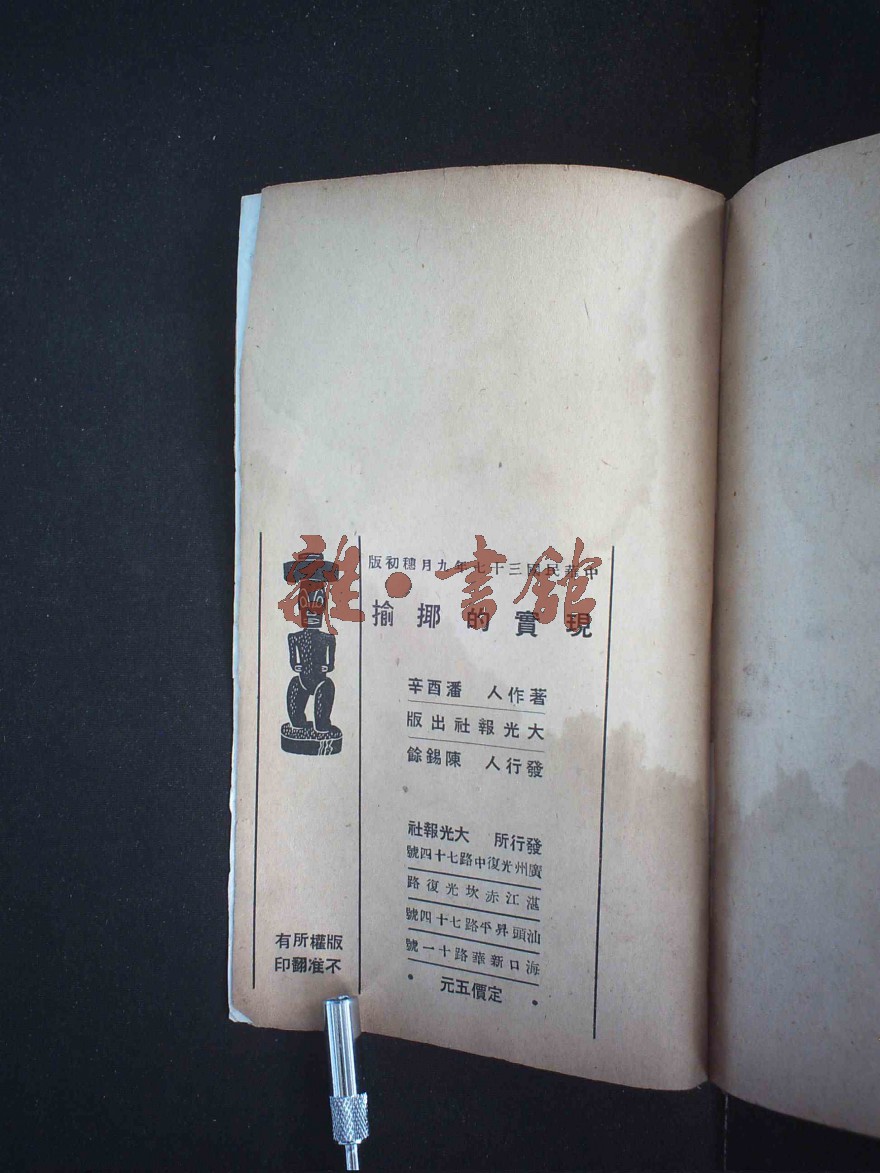 中華民國三十七年九月穗初版
現實的揶揄
著作人 潘酉辛
大光報社出版
發行人 陳錫餘
發行所 大光報社
廣州光復中路七十四號
湛江赤坎光復路
汕頭昇平路七十四號
海口新華路十一號
定價五元
版權所有
不准翻印
雜·書館